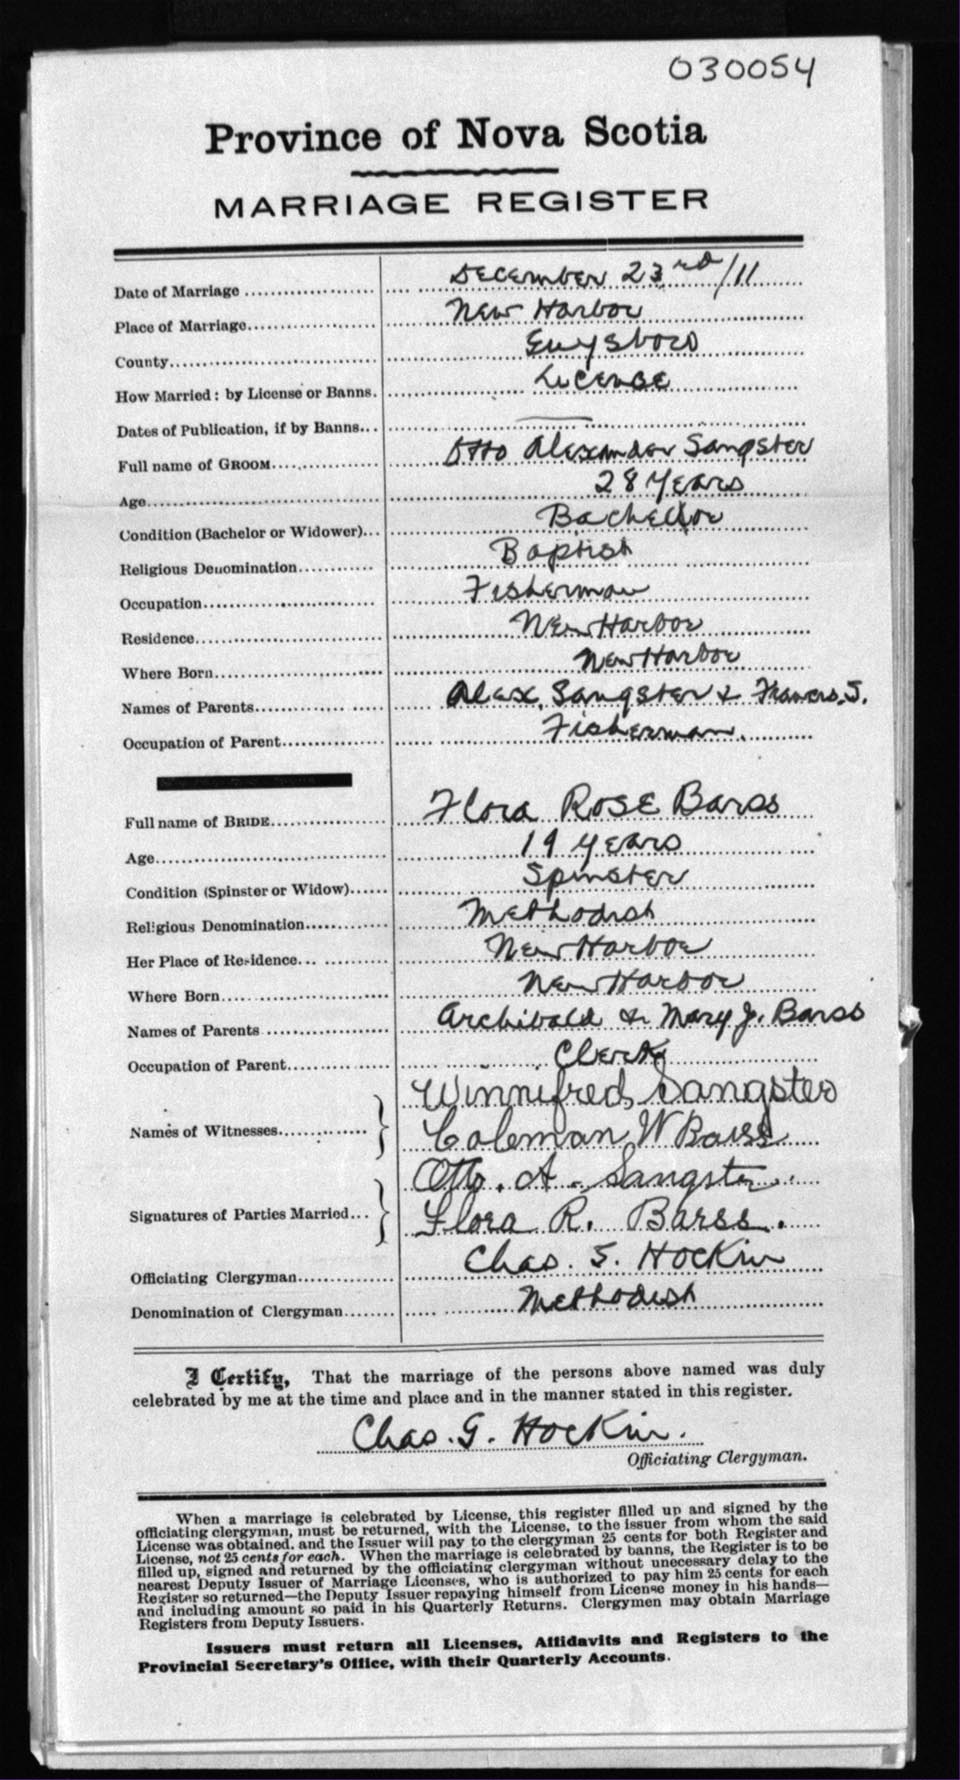 030054
Province of Nova Scotia
MARRIAGE REGISTER
Date of Marriage December 23rd/11
Place of Marriage New Harbor
County Guysboro
How Married: by License or Banns. License
Dates of Publication, if by Banns —
Full name of GROOM Otto Alexander Sangster
Age 28 Years
Condition (Bachelor or Widower) Bachelor
Religious Denomination Baptist
Occupation Fisherman
Residence New Harbor
Where Born New Harbor
Names of Parents Alex. Sangster & Francis. S.
Occupation of Parent Fisherman.
Full name of BRIDE Flora Rose Barss
Age 19 years
Condition (Spinster or Widow) Spinster
Religious Denomination Methodist
Her Place of Residence New Harbor
Where Born New Harbor
Names of Parents Archibald & Mary J. Barss
Occupation of Parent Clerk
Winnifred Sangster
Names of Witnesses Coleman W Barss
Otto. A. Sangster.
Signatures of Parties Married Flora R. Barss.
Officiating Clergyman Chas. G. Hockin
Denomination of Clergyman Methodist
I Certify, That the marriage of the persons above named was duly
celebrated by me at the time and place and in the manner stated in this register.
Chas. G. Hockin.
Officiating Clergyman.
When a marriage is celebrated by License, this register filled up and signed by the
officiating clergyman, must be returned, with the License, to the issuer from whom the said
License was obtained, and the Issuer will pay to the clergyman 25 cents for both Register and
License, not 25 cents for each. When the marriage is celebrated by banns, the Register is to be
filled up, signed and returned by the officiating clergyman without unnecessary delay to the
nearest Deputy Issuer of Marriage Licenses, who is authorized to pay him 25 cents for each
Register so returned—the Deputy Issuer repaying himself from License money in his hands—
and including amount so paid in his Quarterly Returns. Clergymen may obtain Marriage
Registers from Deputy Issuers.
Issuers must return all Licenses, Affidavits and Registers to the
Provincial Secretary's Office, with their Quarterly Accounts.